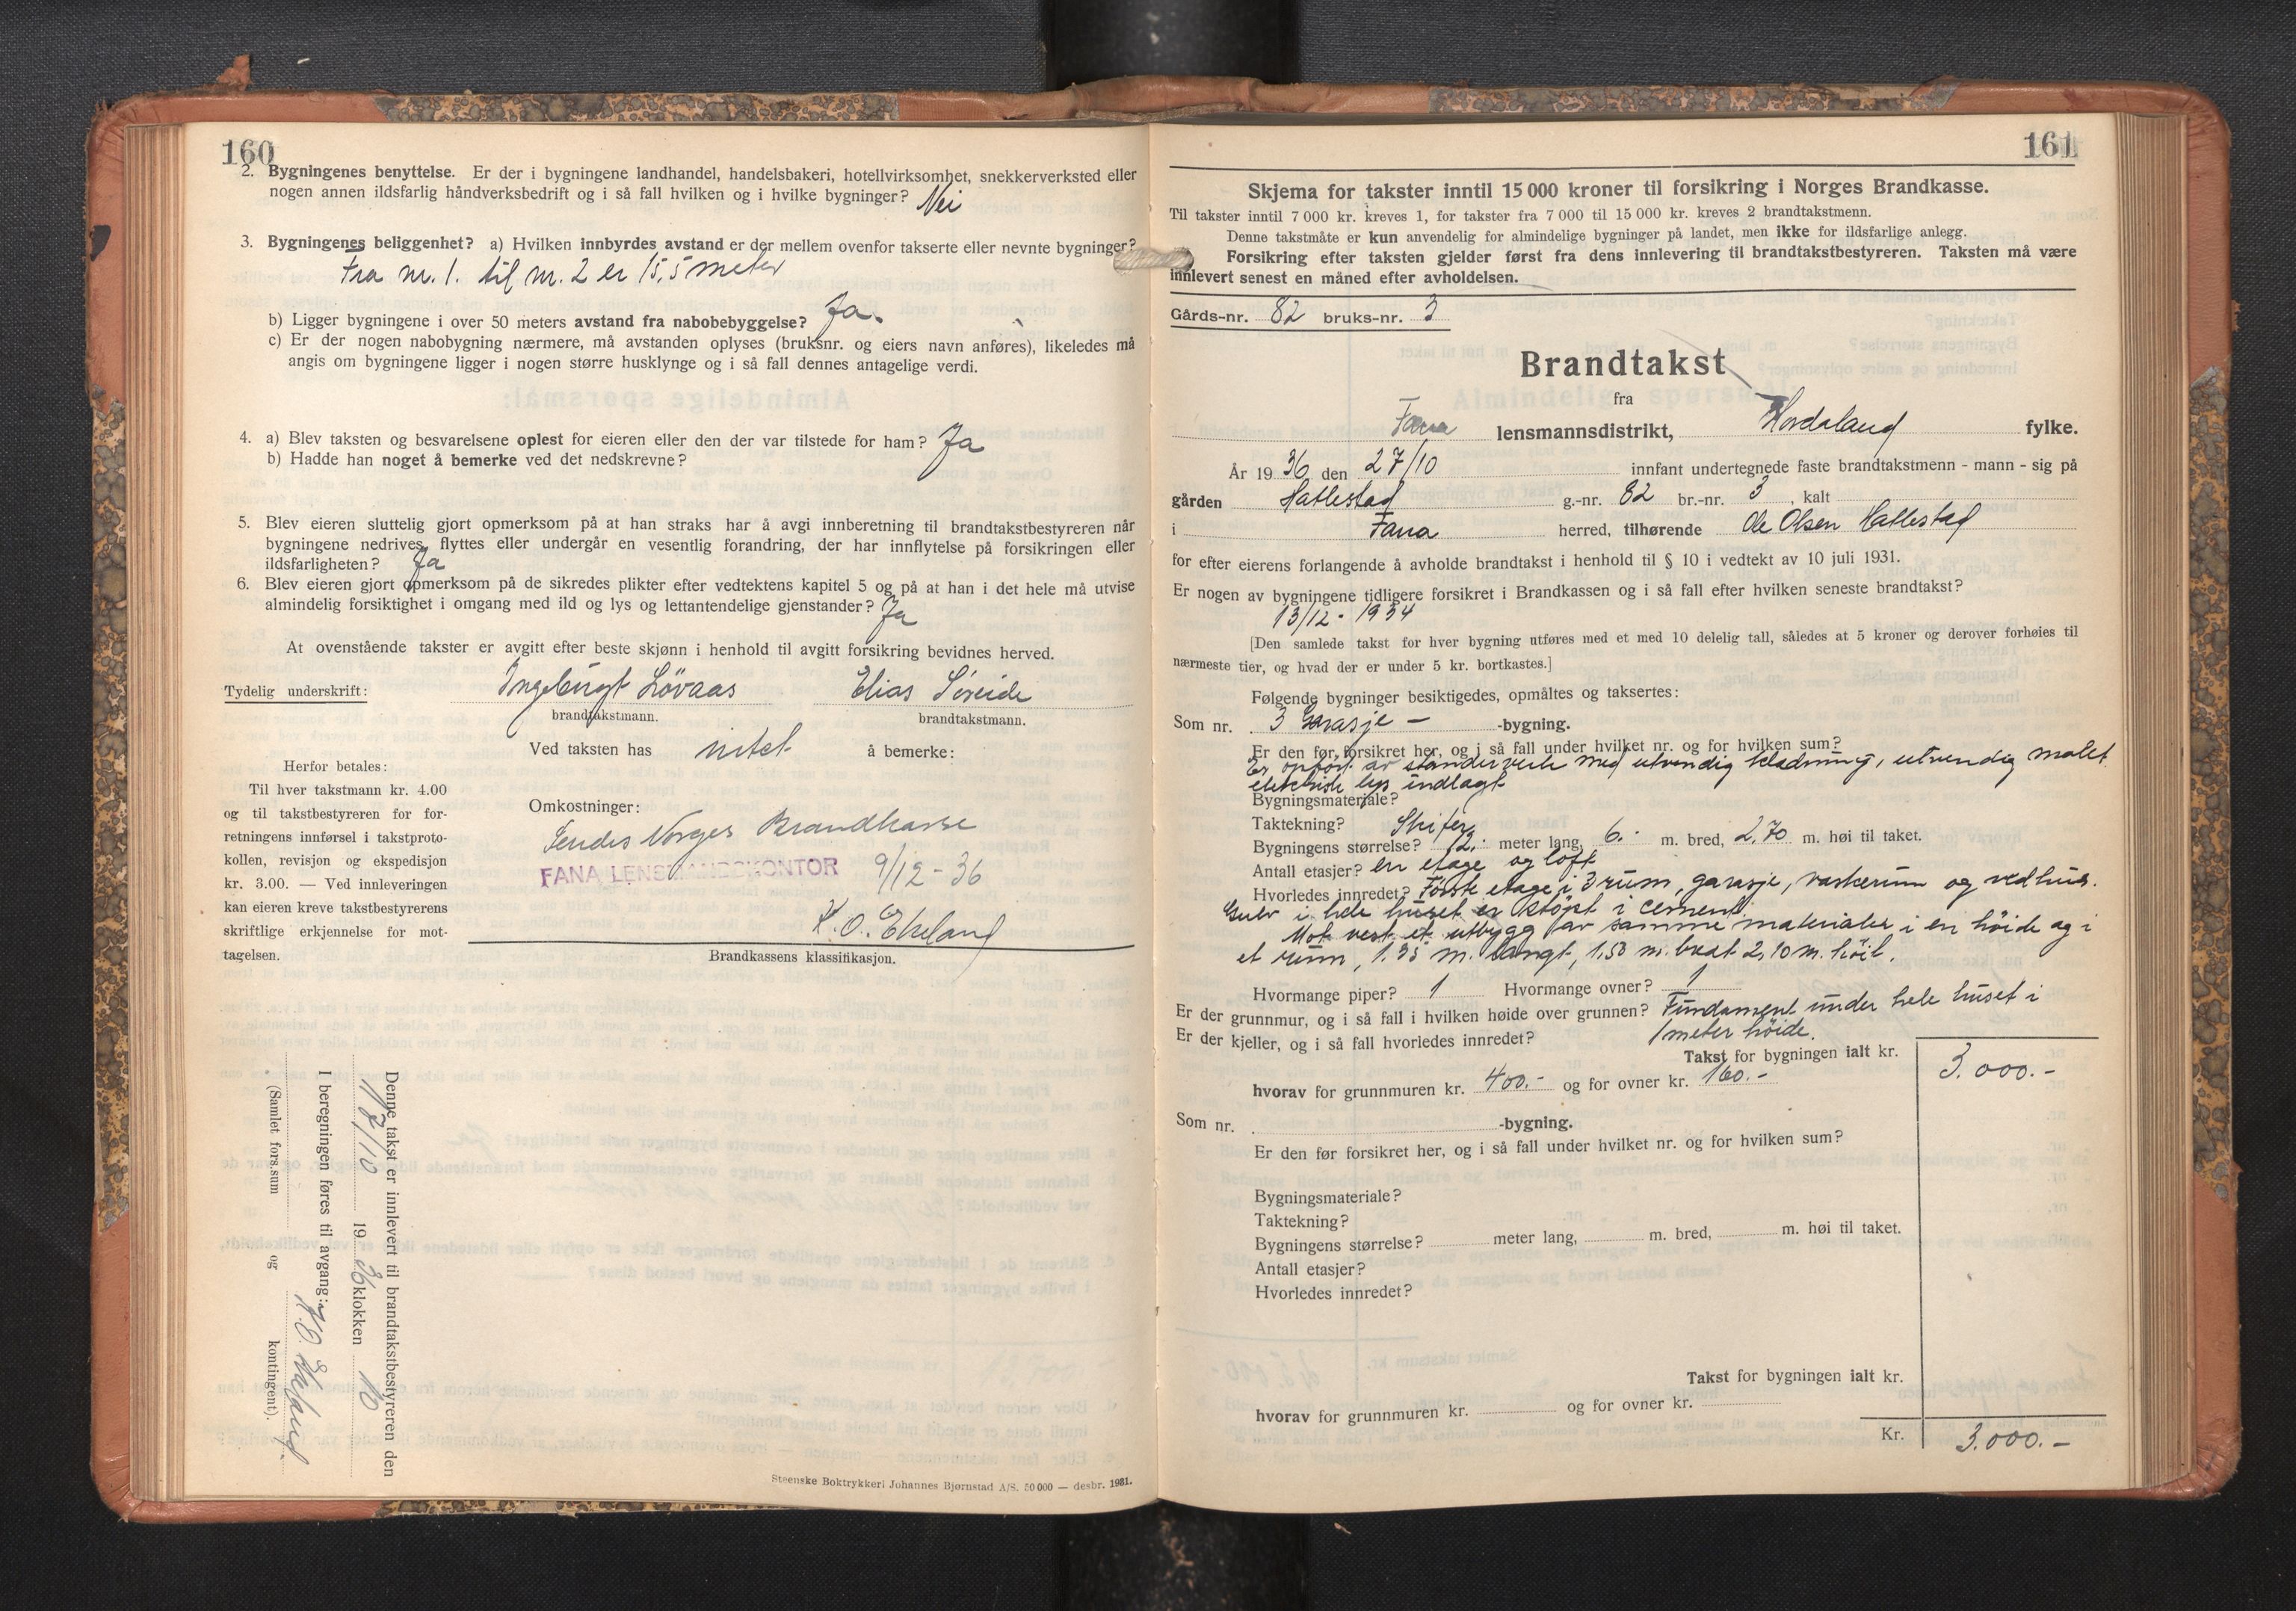 160
2. Bygningenes benyttelse. Er der i bygningene landhandel, handelsbakeri, hotellvirksomhet, snekkerverksted eller
nogen annen ildsfarlig håndverksbedrift og i så fall hvilken og i hvilke bygninger? Nei
3. Bygningenes beliggenhet? a) Hvilken innbyrdes avstand er der mellem ovenfor takserte eller nevnte bygninger?
Fra nr. 1. til nr. 2 er 15,5 meter
b) Ligger bygningene i over 50 meters avstand fra nabobebyggelse? Ja.
c) Er der nogen nabobygning nærmere, må avstanden oplyses (bruksnr. og eiers navn anføres), likeledes må
angis om bygningene ligger i nogen større husklynge og i så fall dennes antagelige verdi.
4. a) Blev taksten og besvarelsene oplest for eieren eller den der var tilstede for ham? Ja
b) Hadde han noget å bemerke ved det nedskrevne?
5. Blev eieren sluttelig gjort opmerksom på at han straks har å avgi innberetning til brandtakstbestyreren når
bygningene nedrives, flyttes eller undergår en vesentlig forandring, der har innflytelse på forsikringen eller
ildsfarligheten? Ja
6. Blev eieren gjort opmerksom på de sikredes plikter efter vedtektens kapitel 5 og på at han i det hele må utvise
almindelig forsiktighet i omgang med ild og lys og lettantendelige gjenstander? Ja
At ovenstående takster er avgitt efter beste skjønn i henhold til avgitt forsikring bevidnes herved.
Tydelig underskrift: Ingebrigt Lövaas Elias Søreide
brandtakstmann. brandtakstmann.
Ved taksten has intet å bemerke:
Herfor betales:
Til hver takstmann kr. 4.00
og til takstbestyreren for for-
retningens innførsel i takstproto-
kollen, revisjon og ekspedisjon
kr. 3.00. — Ved innleveringen
kan eieren kreve takstbestyrerens
skriftlige erkjennelse for mot-
tagelsen.
Omkostninger:
Sendes Norges Brandkasse
FANA LENSMANDSKONTOR 9/12-36
K. O. Ekeland
Brandkassens klassifikasjon.
Denne takst er innlevert til brandtakstbestyreren den
17/10 1936 klokken 10
I beregningen føres til avgang: K.O. Ekeland.
(Samlet fors.sum og kontingent).
Steenske Boktrykkeri Johannes Bjørnstad A/S. 50 000 — desbr. 1931.
161
Skjema for takster inntil 15 000 kroner til forsikring i Norges Brandkasse.
Til takster inntil 7 000 kr. kreves 1, for takster fra 7 000 til 15 000 kr. kreves 2 brandtakstmenn.
Denne takstmåte er kun anvendelig for almindelige bygninger på landet, men ikke for ildsfarlige anlegg.
Forsikring efter taksten gjelder først fra dens innlevering til brandtakstbestyreren. Taksten må være
innlevert senest en måned efter avholdelsen.
Gårds-nr. 82 bruks-nr. 3
Brandtakst
fra
Fana lensmannsdistrikt, Hordaland fylke.
År 1936 den 27/10 innfant undertegnede faste brandtakstmenn - mann - sig på
gården Hatlestad g.-nr. 82 br.-nr. 3, kalt
i Fana herred, tilhørende Ole Olsen Hatlestad
for efter eierens forlangende å avholde brandtakst i henhold til § 10 i vedtekt av 10 juli 1931.
Er nogen av bygningene tidligere forsikret i Brandkassen og i så fall efter hvilken seneste brandtakst?
13/12 - 1934
[Den samlede takst for hver bygning utføres med et med 10 delelig tall, således at 5 kroner og derover forhøies til
nærmeste tier, og hvad der er under 5 kr. bortkastes.]
Følgende bygninger besiktigedes, opmåltes og taksertes:
Som nr. 3 Garasje - -bygning.
Er den før forsikret her, og i så fall under hvilket nr. og for hvilken sum?
Er opført av stenderverk med utvendig kledning, utvendig malet
elektriske lys indlagt
Bygningsmateriale?
Taktekning? Skifer
Bygningens størrelse? 12.- meter lang, 6.- m. bred, 2,70 m. høi til taket.
Antall etasjer? en etage og loft
Hvorledes innredet? Første etage i 3 rum, garasje, vaskerum og vedhus.
Gulv i hele huset er støpt i cement.
Mot vest et utbygg av samme materialer i en höide og i
et rum, 1.55 m. langt, 1,50 m. bredt 2,10 m. höit.
Hvormange piper? 1 Hvormange ovner? 1
Er der grunnmur, og i så fall i hvilken høide over grunnen? Fundament under hele huset i
Er der kjeller, og i så fall hvorledes innredet? 1 meter höide.
Takst for bygningen ialt kr. 3.000.-
hvorav for grunnmuren kr. 400.- og for ovner kr. 160.-
Som nr. -bygning.
Er den før forsikret her, og i så fall under hvilket nr. og for hvilken sum?
Bygningsmateriale?
Taktekning?
Bygningens størrelse? meter lang, m. bred, m. høi til taket.
Antall etasjer?
Hvorledes innredet?
Takst for bygningen ialt kr.
hvorav for grunnmuren kr. og for ovner kr.
Kr. 3.000.-